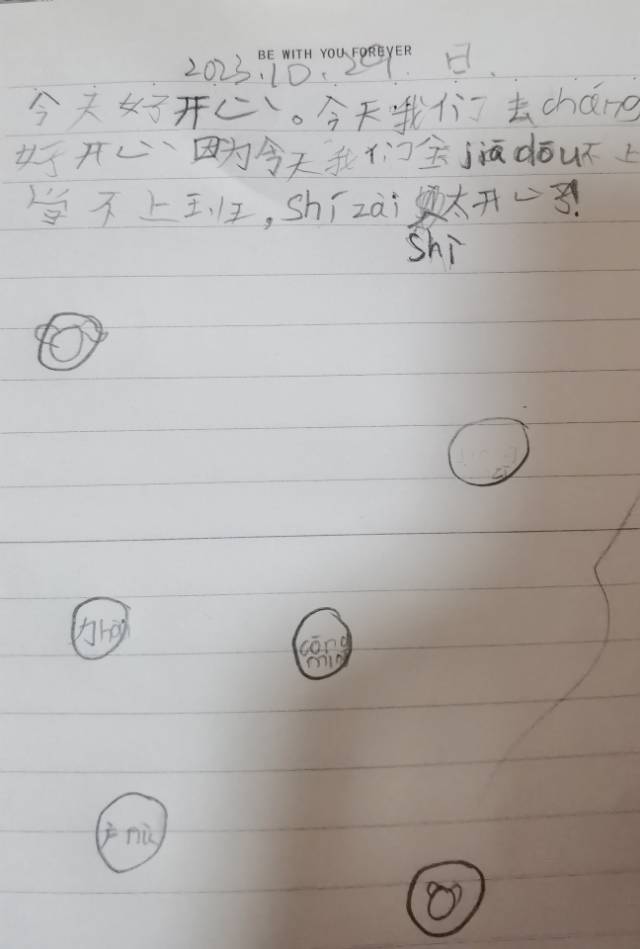 BE WITH YOU FOREVER
2023.10.29.日.
今天好开心。今天我们去cháng
好开心因为今天我们全jiādōu不上
学不上班,Shízài太开心了!
Shì
cōng
mín